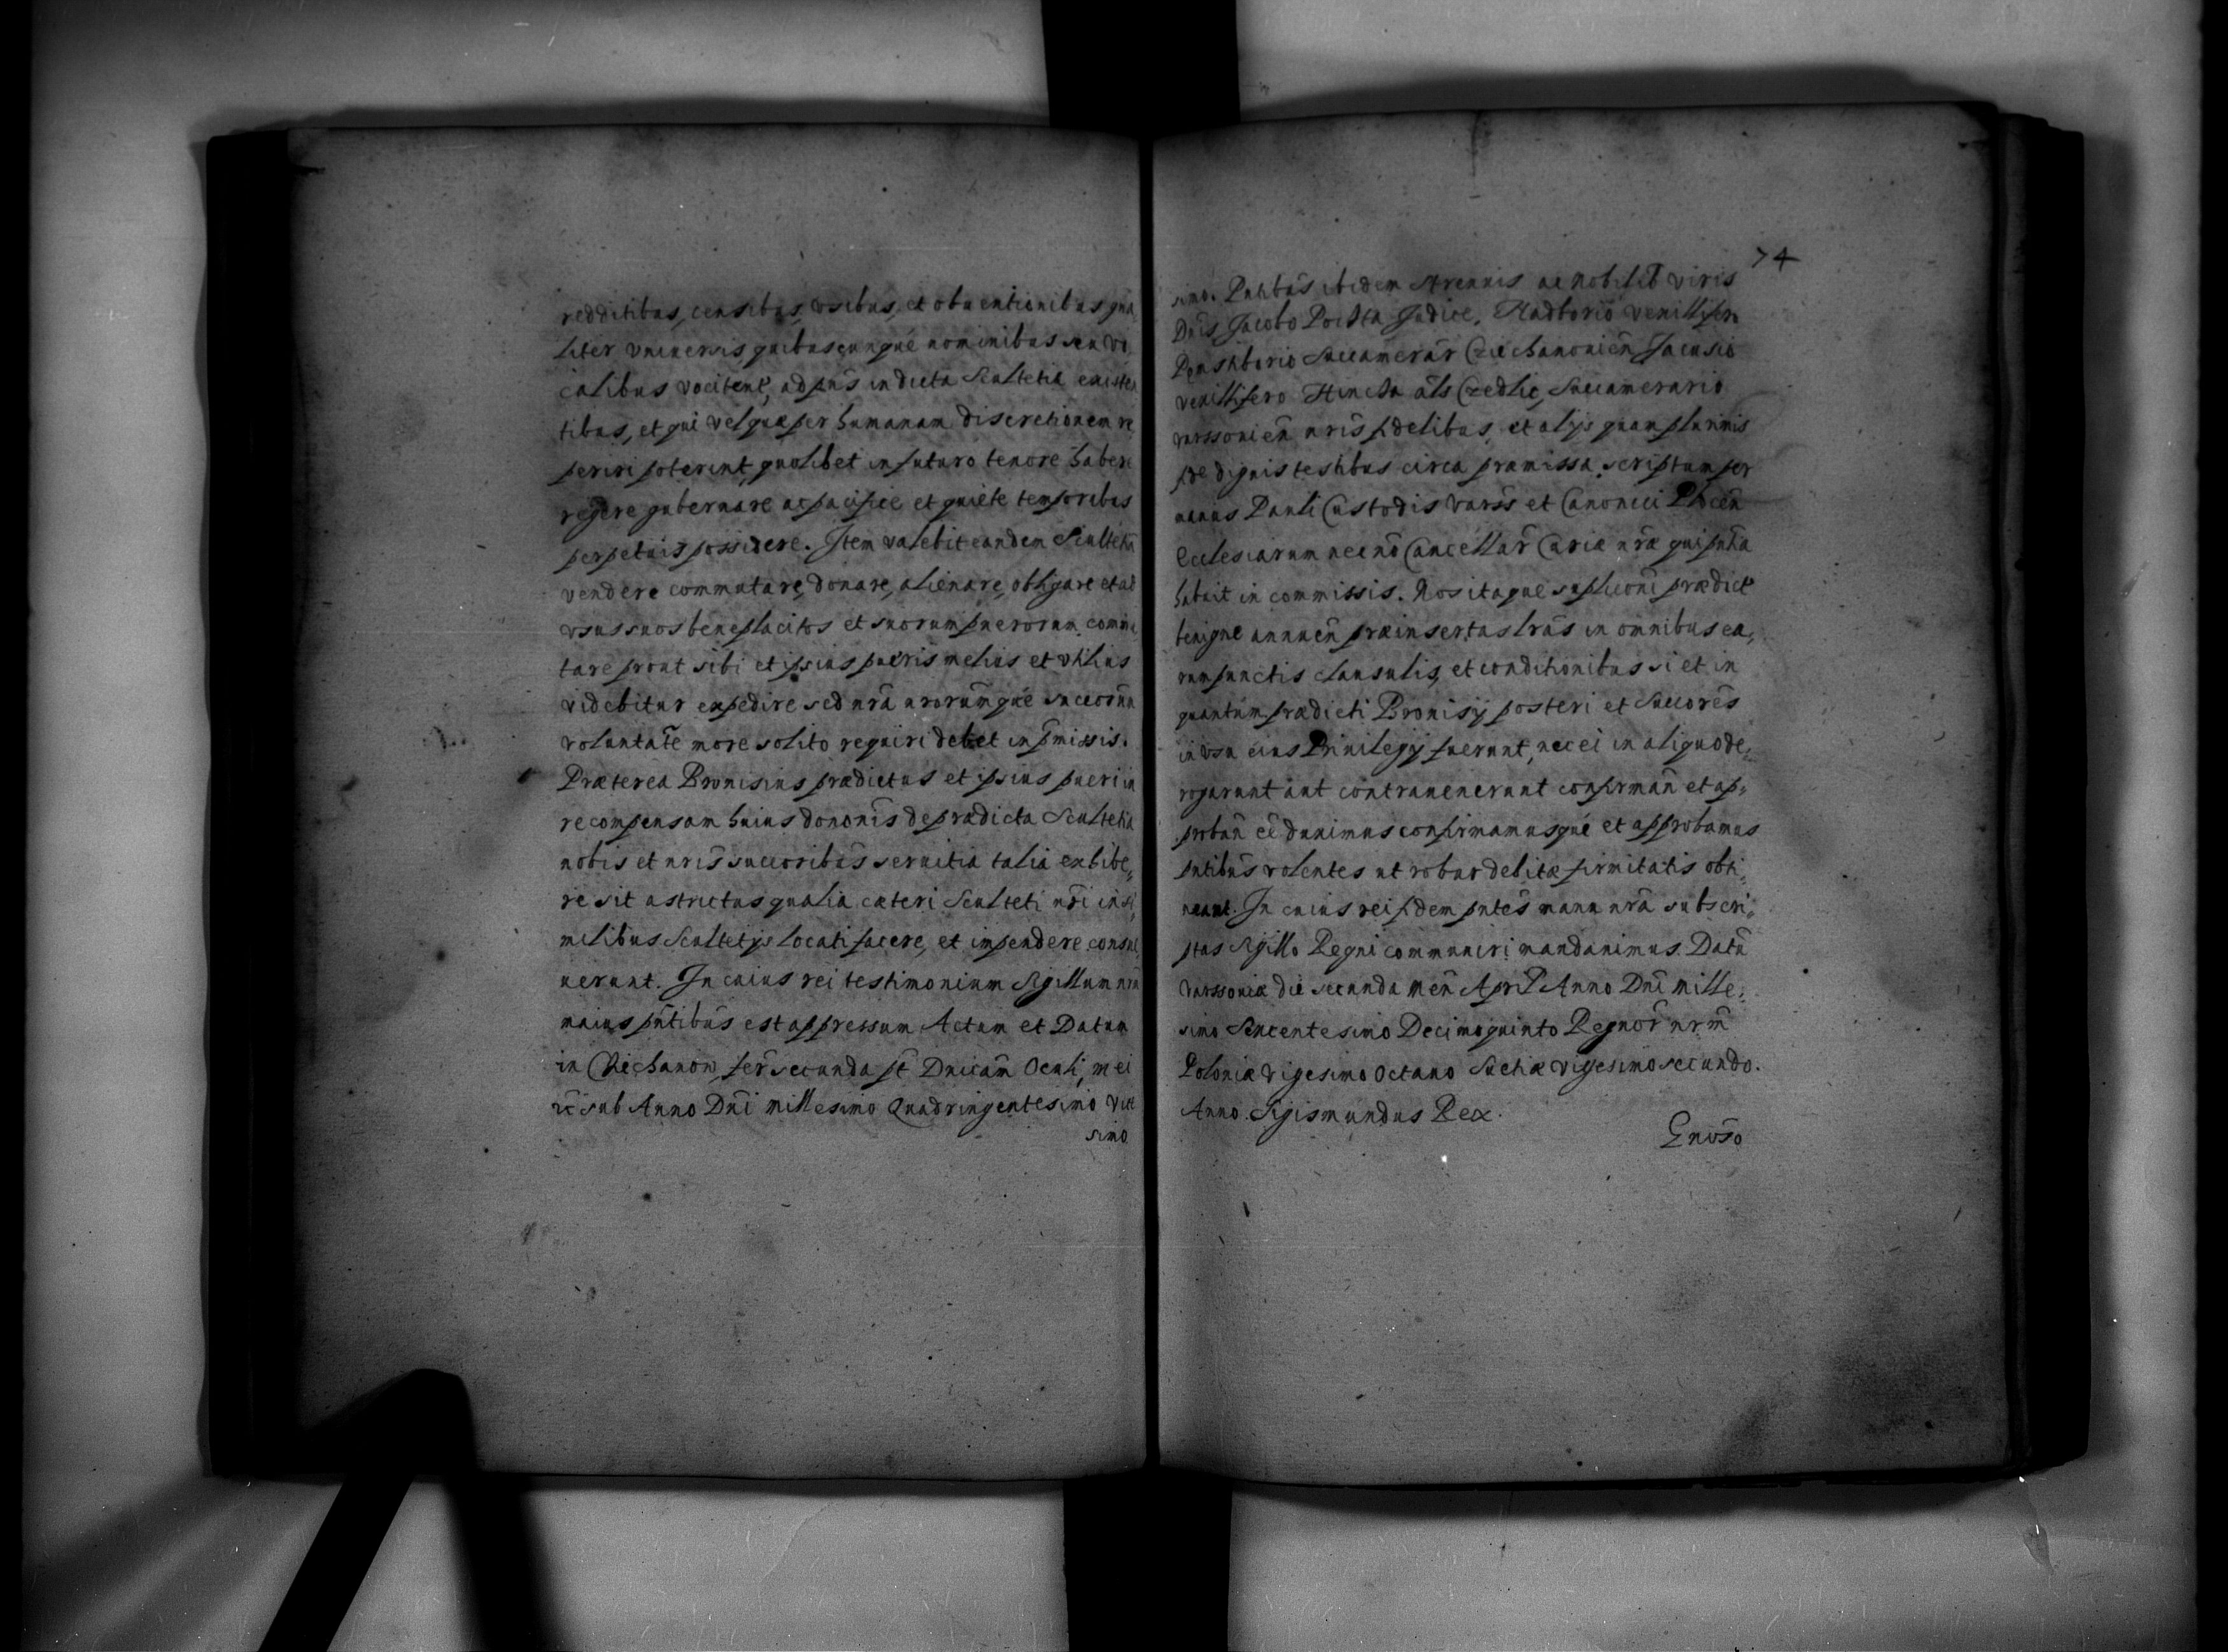 redditibus, censibus, vsibus, et obuentionibus qua
liter vniuersis quibuscunque nominibus seu vo
calibus vocitent, ad pñs in dicta Scultetia existen
tibus, et qui vel quæ per humanam discretionem re
periri poterint, quolibet in futuro tenore habere
regere gubernare ac pacifice et quiete temporibus
perpetuis possidere. Item valebit eandem Scultetiã
vendere commutare, donare, alienare, obligare et ad
vsus suos beneplacitos et suorum puerorum commu,
tare prout sibi et ipsius pueris melius et vtilius
videbitur expedire sed nrã nrorumqué succorum
voluntate more solito requiri debet in pmissis.
Præterea Bronisius prædictus et ipsius pueri in
recompensam huius dononis de prædicta Scultetia
nobis et nris succoribus seruitia talia exhibe,,
re sit astrictus qualia cæteri Sculteti nri in si,
milibus Scultetijs locati facere, et impendere consue,
uerunt. In cuius rei testimonium Sigillum nrm
maius pntibus est appressum Actum et Datum
in Ciechanow, fer secunda pt Dnicam Oculi, mei
sub Anno Dni Millesimo Quadringentesimo vice
simo
74
simo. Pntibus ibidem strenuis ac nobilib viris
Dnis Jacobo Judice, Nadborio Vexillifero
Succamerar Czechanonien Jacusio
vexillifero als Succamerario
varssouien nris fidelibus, et alijs quam plurimis
fide dignis testibus circa præmissa. scriptum per
manus Pauli Custodis Varss et Canonici Plocen
Ecclesiarum nec nõ Cancellar Curiæ nræ qui pntia
habuit in commissis. Nos itaque suplicõni prædict
benigne annuen præinsertas lras in omnibus ea,
rum punctis clausulis, et conditionibus si et in
quantum prædicti Bronisij posteri et Succores
in vsu eius Priuilegij fuerunt, nec ei in aliquo de,
rogarunt aut contrauenerunt confirman et ap,
proban ee duximus confirmamusqué et approbamus
pntibus volentes ut robur debitæ firmitatis obti,
neant. In cuius rei fidem pntes manu nra subscri,
ptas Sigillo Regni communiri mandauimus. Datũ
Varssouiæ die secunda Men April Anno Dni Mille,
simo Sexcentesimo Decimoquinto Regnor nrm
Poloniæ vigesimo Octauo Suetiæ vigesimo secundo.
Anno. Sigismundus Rex.